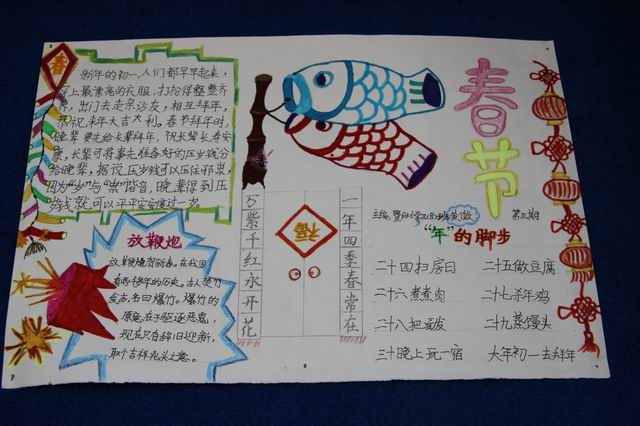 春
新年的初一,人们都早早起来,
穿上最漂亮的衣服,打扮得整整齐
齐,出门去走亲访友,相互拜年,
恭祝来年大吉大利。春节拜年时,
晚辈要先给长辈拜年,祝长辈长寿安
康,长辈可将事先准备好的压岁钱分
给晚辈,据说压岁钱可以压住邪祟,
因为“岁”与“祟”谐音,晚辈得到压
岁钱就可以平平安安度过一岁。
放鞭炮
放鞭炮贺新春,在我国
驱逐恶鬼,
辞旧迎新,
取个吉祥兆头之意。
万紫千红永开花
福
一年四季春常在
春节
主编
第二期
“年”的脚步
二十四扫房日
二十五做豆腐
二十六煮煮肉
二十七杀年鸡
二十八把面发
二十九蒸馒头
三十晚上玩一宿
大年初一去拜年